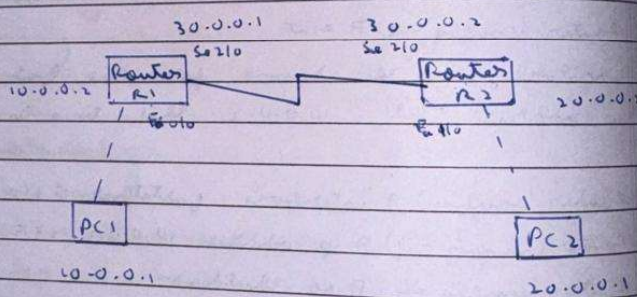 30.0.0.1 30.0.0.2
Se 2/0 Se 2/0
Router Router
10.0.0.2 R1 R2 20.0.0.
Fa 0/0
PC1 PC2
10.0.0.1 20.0.0.1